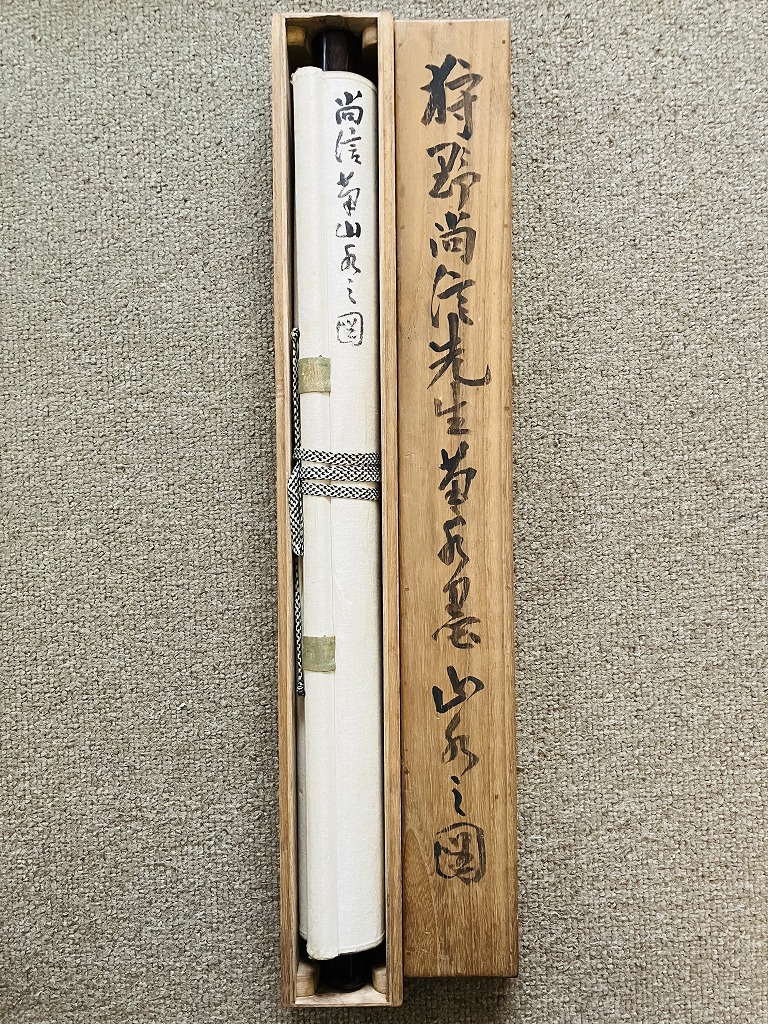 狩野尚信先生筆水墨山水之図
尚信筆山水之図